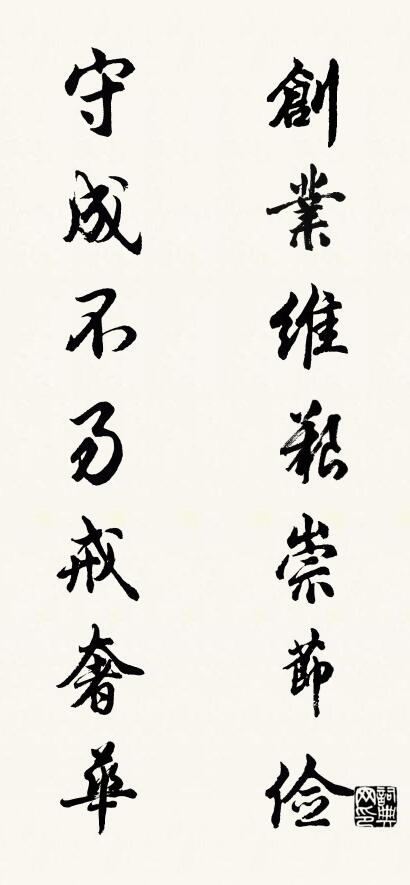 創業維艱崇節儉
守成不易戒奢華
詞典網印